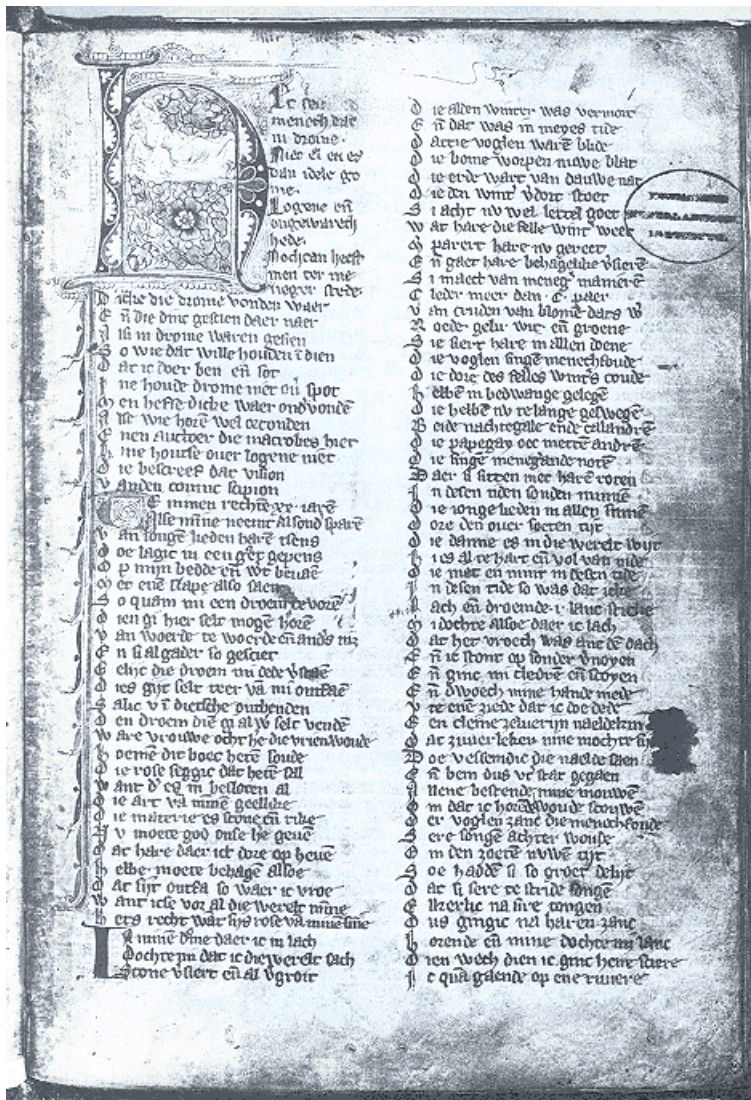 H Et seit
menech dat
in drome
Niet ei en es
dan idele go
me·
Logene eñ
ongewarech
hede·
Nochtan heeft
men ter me
neger stede·
D icke die drome vonden waer
E ñ die dinc gescien daer naer
A lsi in drome waren gesien
S o wie dat wille houden ī dien
D at ic doer ben eñ sot
I ne houde drome niet ouͬ spot
M en heefse dicke waer ondvondē
A lse wie horē wel orconden
E nen auctoer die macrobes hiet
H ine houtse ouer logene niet
D ie bescreef dat vision
V anden coninc scipion
T e minen rechtē xx· iarē
Alse mīne neemt alsond sparē
V an iongē lieden harē tsens
D oe lagic in een gͬet gepens
O p mijn bedde eñ wt beuaē
M et enē slape also saen
S o quam mi een droem te vorē
D ien gi hier selt mogē horē
V an woerde te woerde eñ ands nīͭ
E n si al gader so gesciet
G elijc die droem mi dede vͬstaē
D ies gijt selt teer vā mi ontfaē
S alic v ī dietsche onthenden
D en droem diē gi al w selt vendē
W are vrouwe ocht he die vrien woude
H oemē dit boec hetē soude
D ie rose seggic dat hetē sal
W ant dͬ es in besloten al
D ie art vā mīnē geellike
D ie materie es scone eñ rike
N v moete god onse he geuē
D at hare daer ict dore op heuē
H elbe· moete behagē alsoe
D at sijt ontfa so waer ic vroe
W ant icse vor al die werelt mīne
H ets recht wat sijs rose vā mine sine
In minē dͬme daer ic in lach
Dochte mi dat ic die werelt sach
Scone vͬsiert eñ al vͬgroit
D ie alden winter was vermoit
E ñ dat was in meyes tide
D attie voglen warē blide
D ie bome worpen nuwe blat
D ie erde wart van dauwe nat
D ie den wintͬ vͬdort stoet
S i acht nv wel lettel goet
W at hare die felle wintͬ weet
M pareert hare nv gereet
E ñ gaet hare behagelike vͬsierē
S i maect van menegͬ manierē
C leder meer dan ·c· paer
V an cruden van blomē dats wͬ
R oede gelu wit eñ groene
D ie siert hare in allen doene
D ie voglen singē menechfoude
D ie dore des felles wintͬs coude
H elbē in bedwange gelegē
D ie helbē nv te lange geswegē
B eide nachtegale ende calandrē
D ie papegay oec metten andrē
D ie singē menegande notē
D aer si sitten met harē roten
I n desen tiden souden minnē
D ie ionge lieden in allen sinnē
D ore den ouer soeten tijt
D ie danne es in die werelt wijt
H i es al te hart eñ vol van nide
D ie niet en mint in desen tide
I n desen tide so was dat icke
L ach eñ droemde ·i· lanc sticke
M i dochte alsoe daer ic lach
D at het vroech was ane dē dach
E ñ ic stont op sonder vͬnoyen
E ñ ginc mi cledrē eñ scoyen
E ñ dwoech mine hande mede
V te enē ziede dat ic doe dede
E en cleine zeluerijn naeldekin
D at zuuerleker nine mochte sijn
D oe vessemdic die naelde saen
E ñ bem dus vt stat gegaen
A llene bestende mine mouwē
O m dat ic horē woude scouwē
D er voglen zanc die menechfoude
S ere songē achter woude
O m den zoetē nvwē tijt
S oe haddē si so groet delijt
D at si sere te stride songē
E lkerlic na sire tongen
D us gingic na haren zanc
H orende eñ mine dochte mi lanc
D ien wech dien ic ginc hene sciere
I c quā gaende op ene riuiere